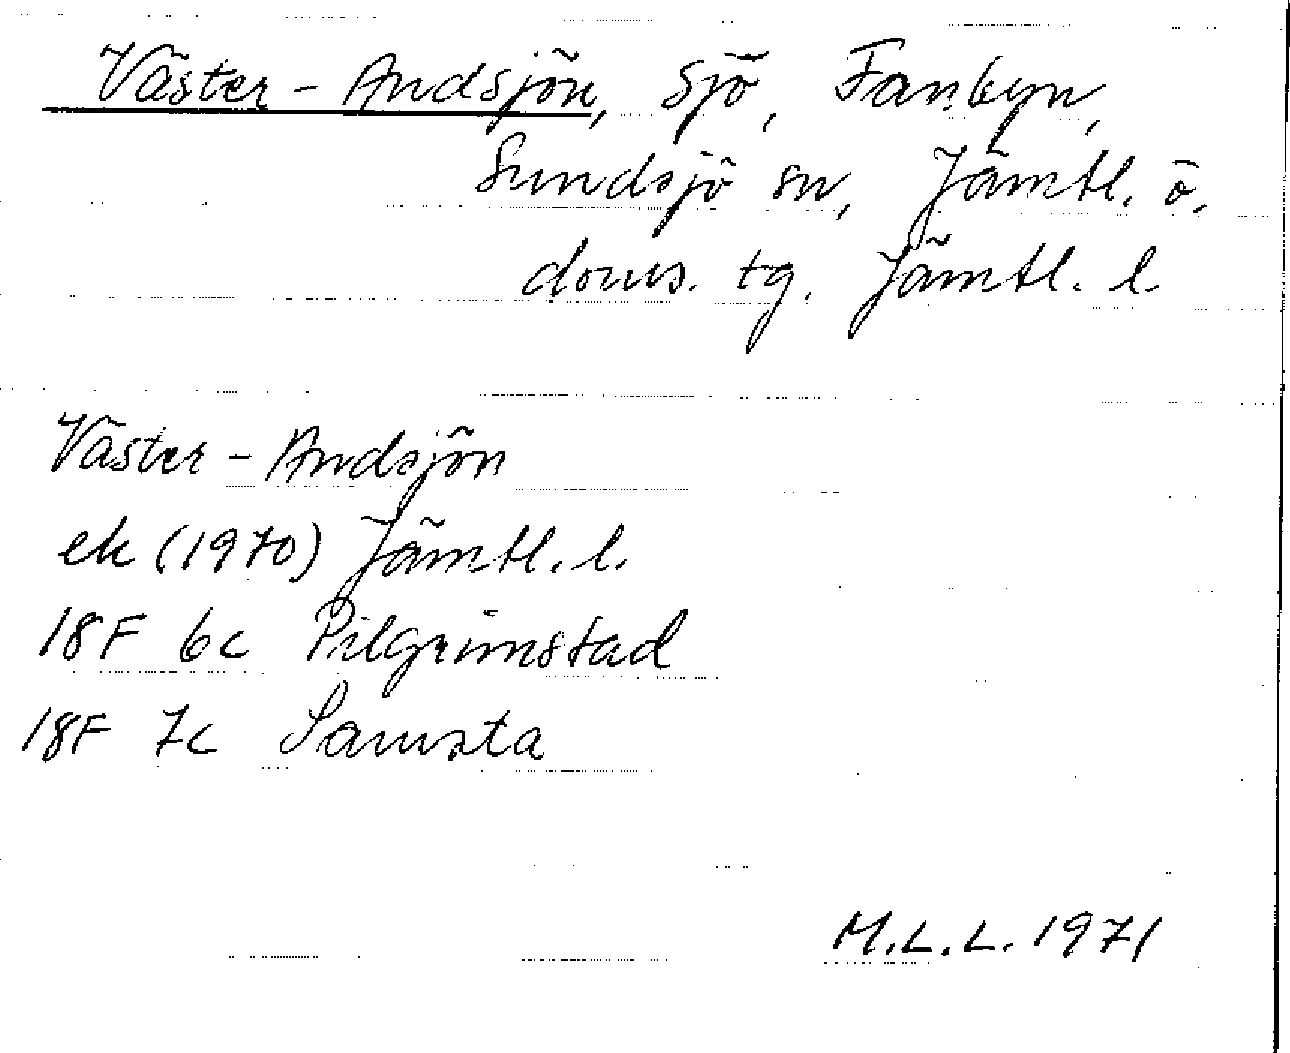 Väster-Andsjön, sjö, Fanbyn,
Sundsjö sn, Jämtl. ö.
doms. tg. Jämtl. l.
Väster-Andsjön
ek (1970) Jämtl. l.
18F 6c Pilgrimstad
18F 7c Samsta
M.L.L. 1971